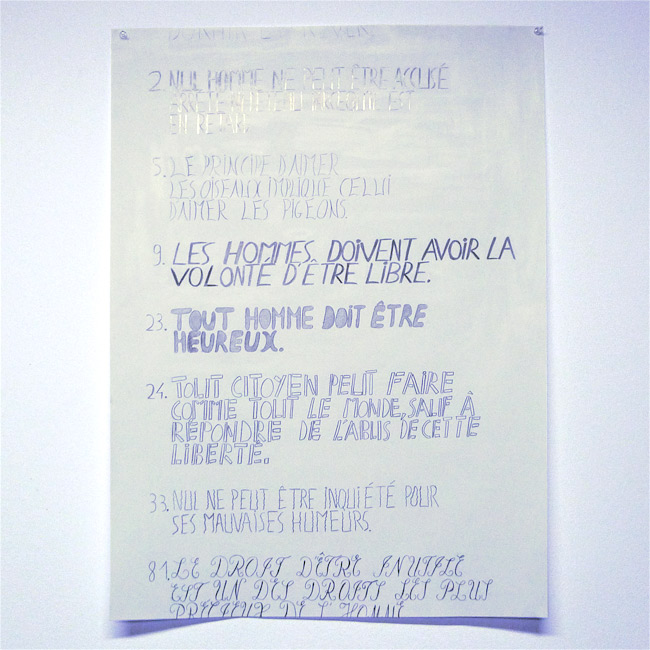 DORMIR ET RÊVER.
2. NUL HOMME NE PEUT ÊTRE ACCUSÉ
EST
EN RETARD.
5. LE PRINCIPE D'AIMER
LES OISEAUX IMPLIQUE CELUI
D'AIMER LES PIGEONS.
9. LES HOMMES DOIVENT AVOIR LA
VOLONTÉ D'ÊTRE LIBRE.
23. TOUT HOMME DOIT ÊTRE
HEUREUX.
24. TOUT CITOYEN PEUT FAIRE
COMME TOUT LE MONDE, SAUF À
RÉPONDRE DE L'ABUS DE CETTE
LIBERTÉ.
33. NUL NE PEUT ÊTRE INQUIÉTÉ POUR
SES MAUVAISES HUMEURS.
81. LE DROIT D'ÊTRE INUTILE
EST UN DES DROITS LES PLUS
PRÉCIEUX DE L'HOMME